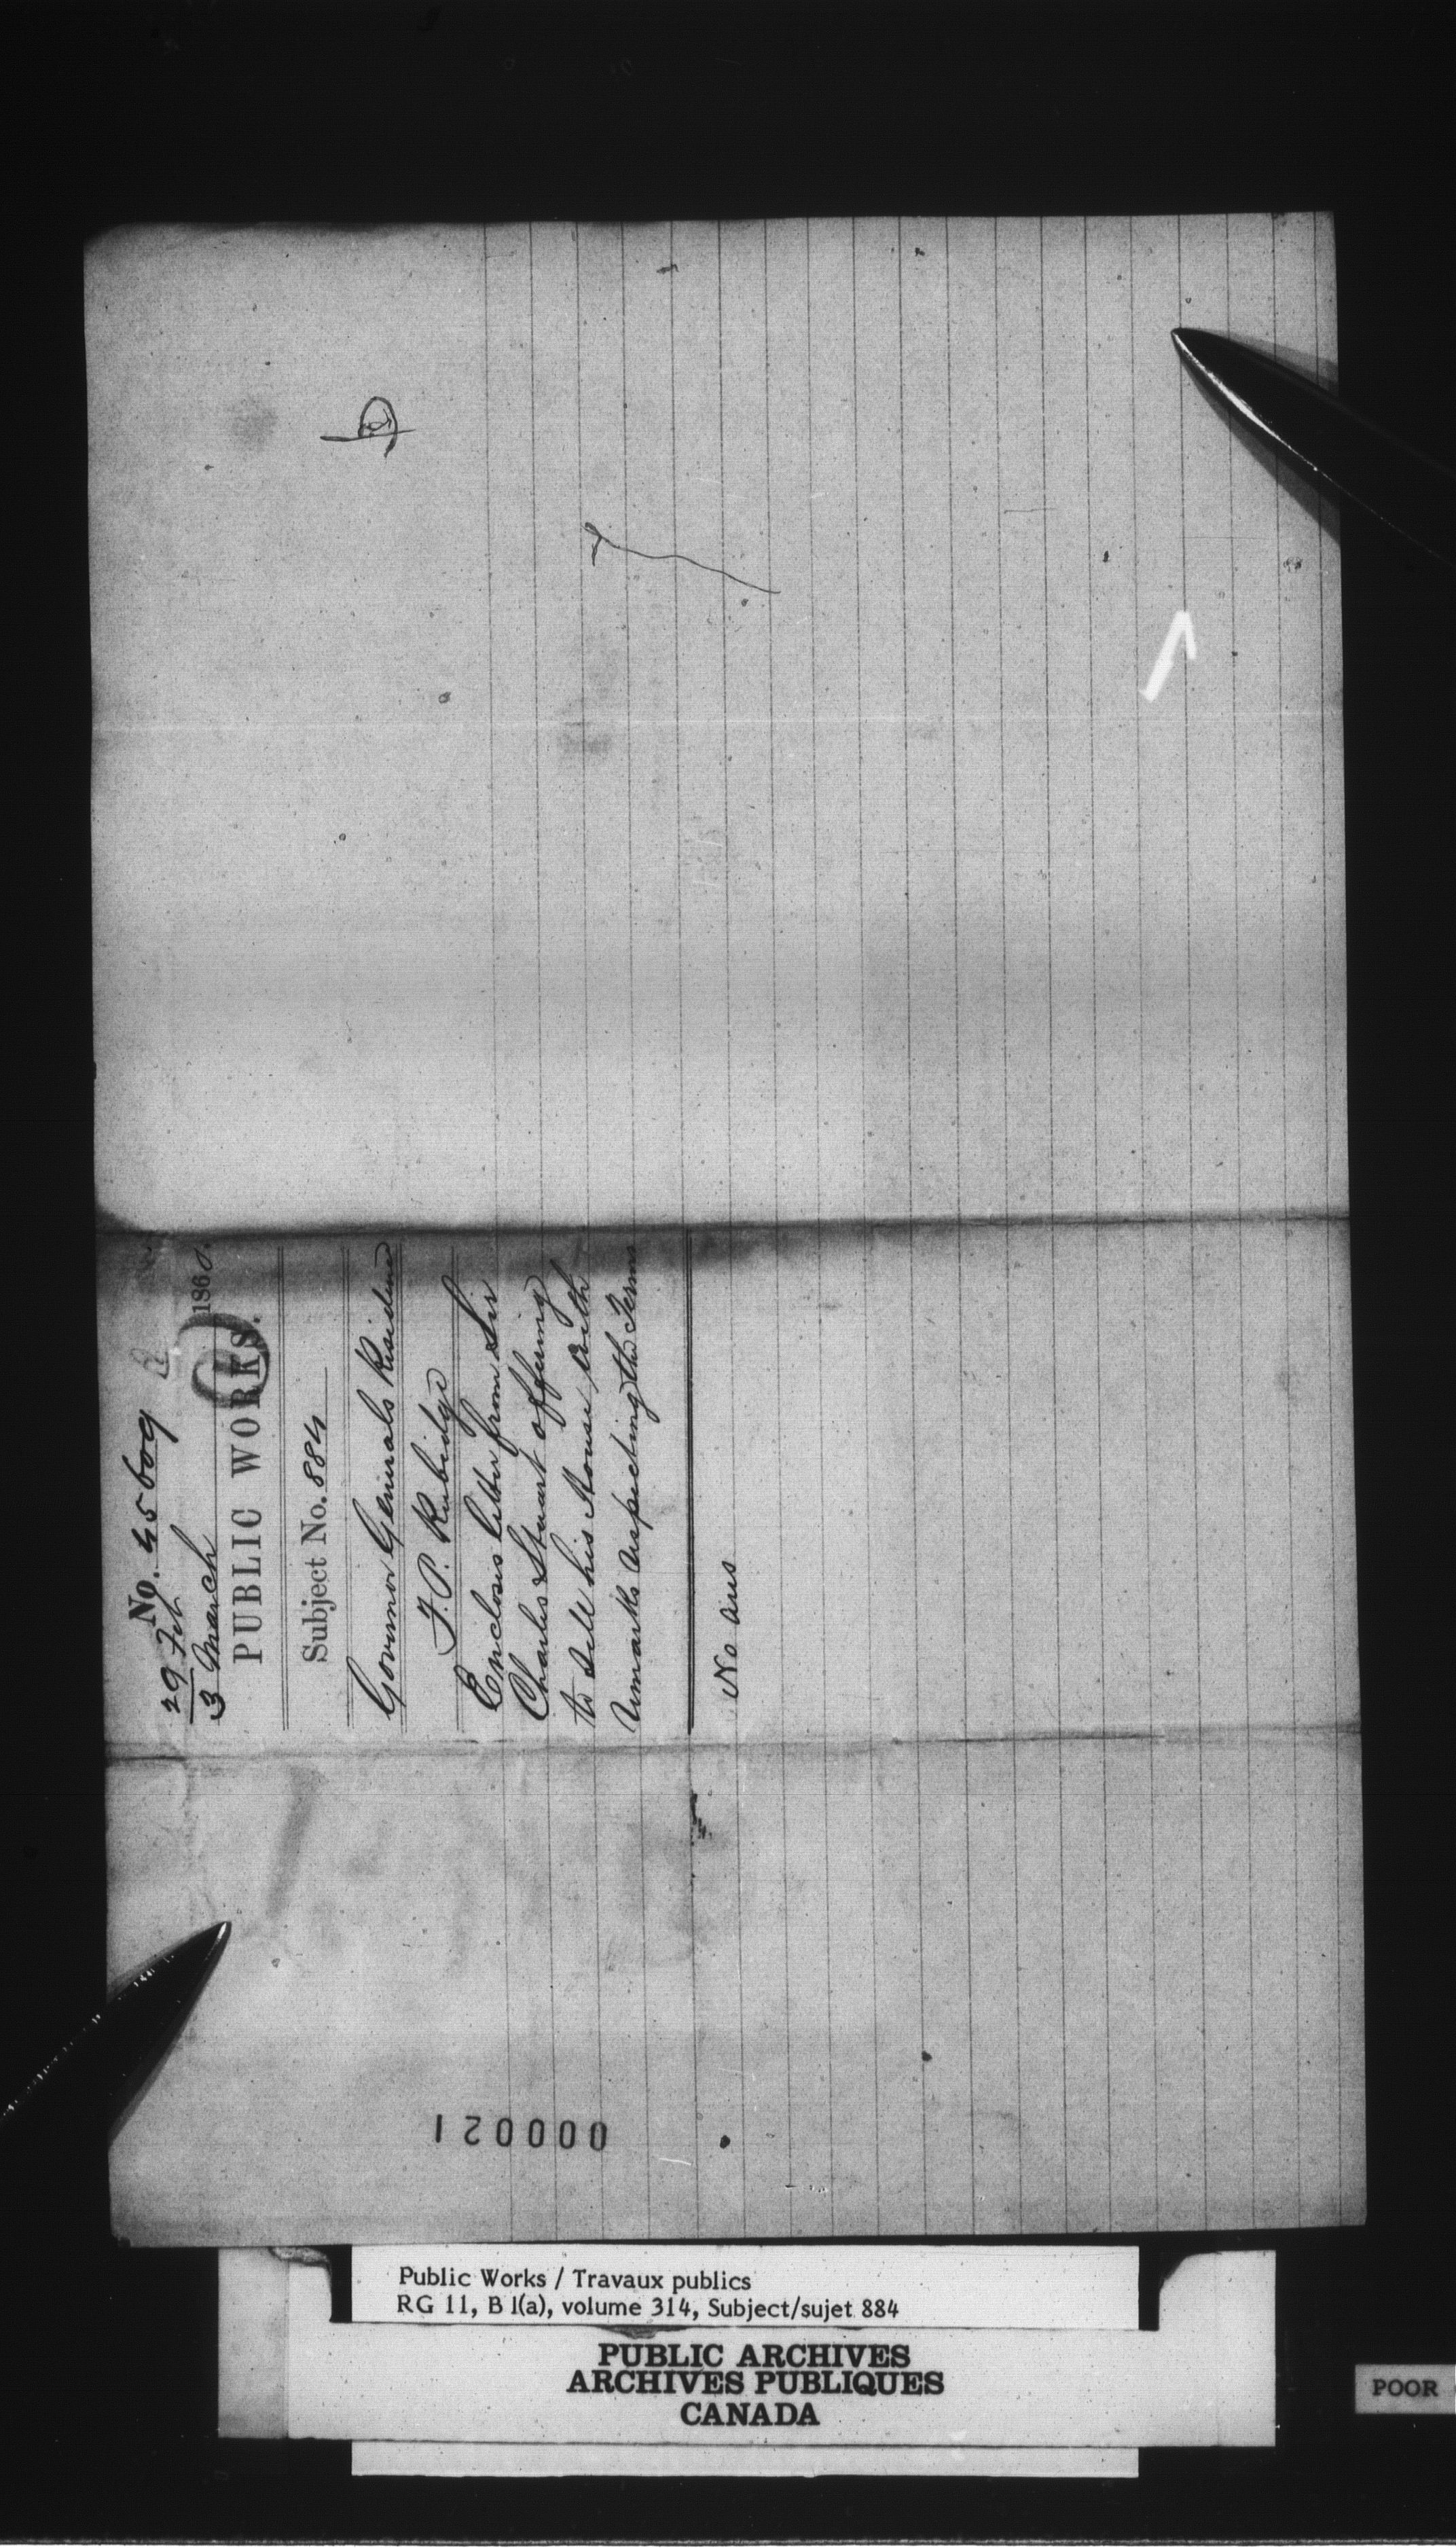 No. 45609
29 Feb
3 March 1860.
PUBLIC WORKS.
Subject No. 884
Governor Generals Residence
F. P. Rubidge
Encloses letter from Sir
Charles Stuart offering
to sell his House with
remarks respecting the Terms
No ans
000021
Public Works / Travaux publics
RG 11, B 1(a), volume 314, Subject/sujet 884
PUBLIC ARCHIVES
ARCHIVES PUBLIQUES
CANADA
POOR